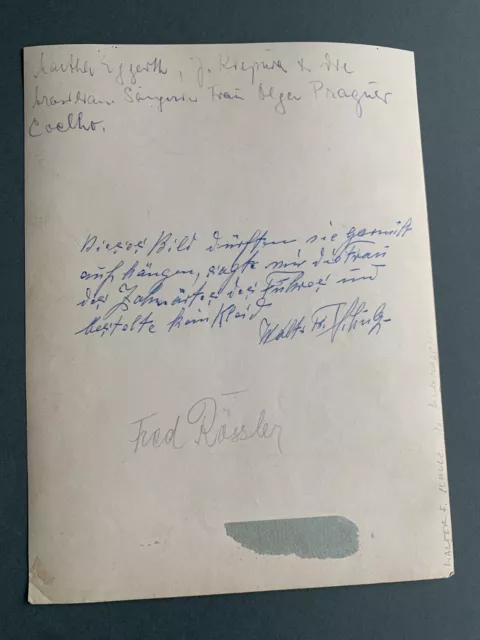 Martha Eggerth, J. Kiepura & die
brasilian. Sängerin Frau Olga Praguer
Coelho.
Dieses Bild dürften sie garnicht
aufhängen, sagte mir die Frau
des Zahnärztes des Führes und
bestellte kein Kleid
Walter Fr. Schulz
Fred Rössler
WALTER F. SCHULZ